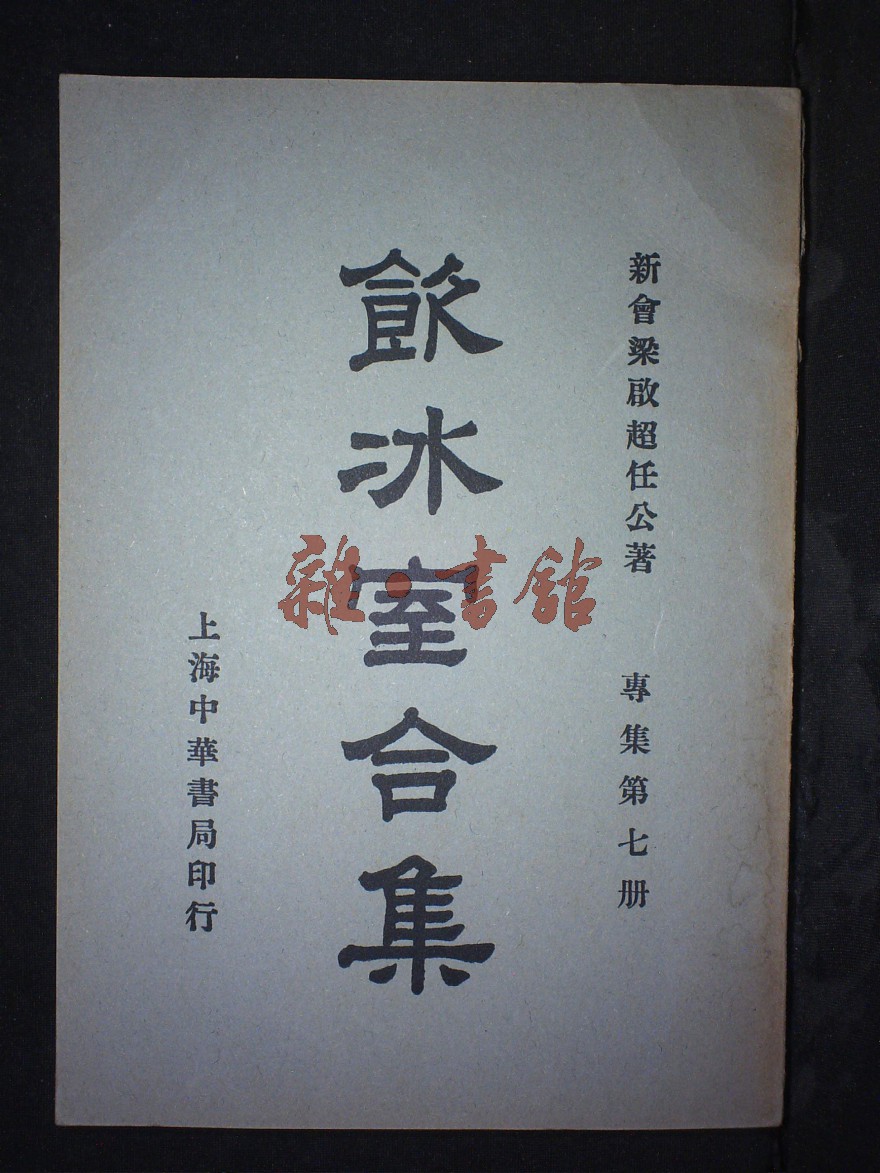 新會梁啟超任公著
專集第七册
飲冰室合集
上海中華書局印行
雜·書館